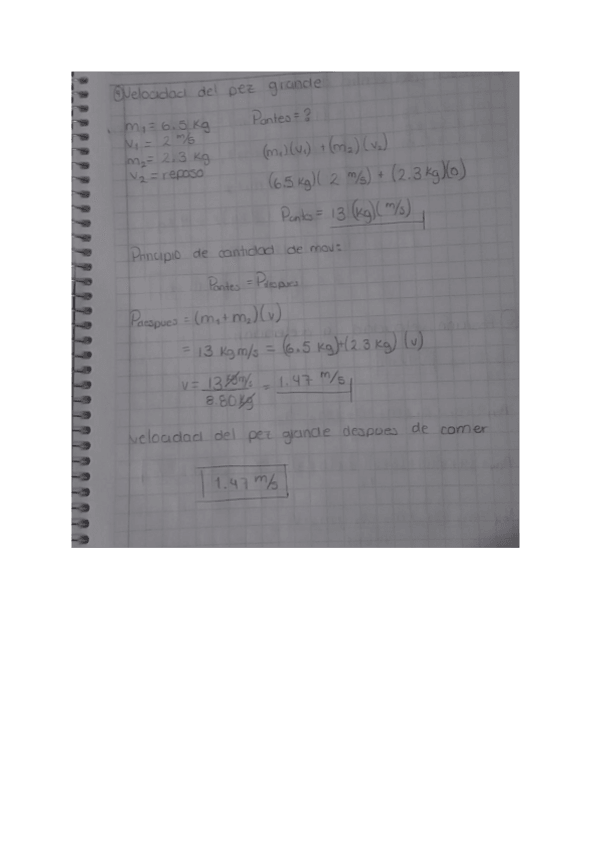 Velocidad del pez grande
m₁ = 6.5 kg
v₁ = 2 m/s
m₂ = 2.3 kg
v₂ = reposo
Pantes = ?
(m₁)(v₁) + (m₂)(v₂)
(6.5 kg)( 2 m/s) + (2.3 kg)(0)
Pantes = 13 (kg)(m/s)
Principio de cantidad de mov:
Pantes = Pdespues
Pdespues = (m₁+m₂)(v)
= 13 kg m/s = (6.5 kg)+(2.3 kg) (v)
v = 13 kg m/s / 8.80 kg = 1.47 m/s
velocidad del pez grande despues de comer
1.47 m/s